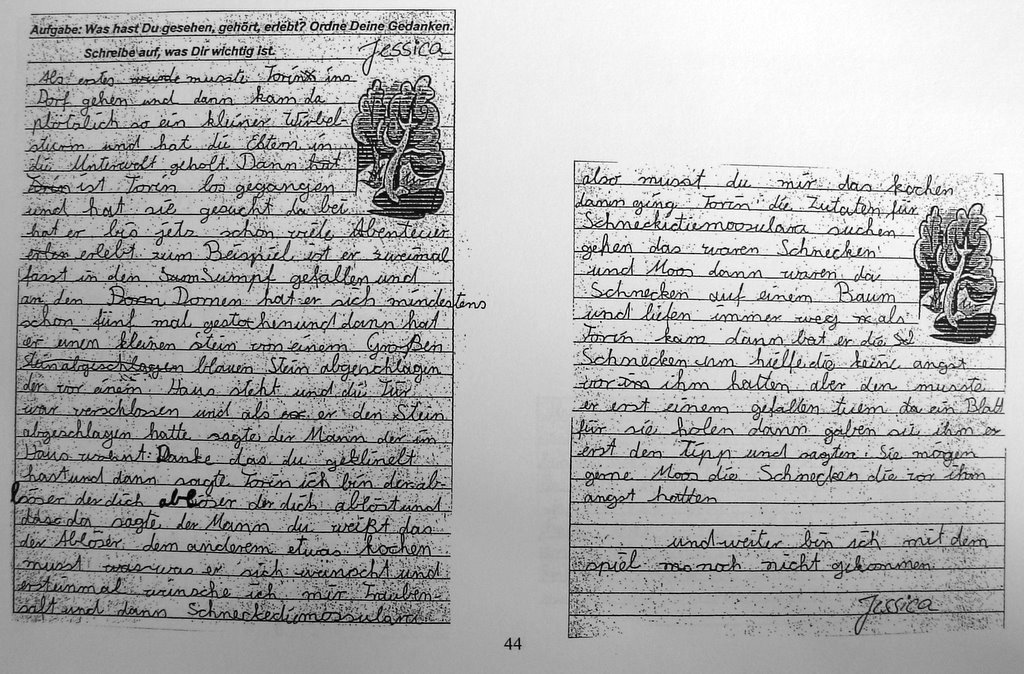 Aufgabe: Was hast Du gesehen, gehört, erlebt? Ordne Deine Gedanken.
Schreibe auf, was Dir wichtig ist.
Jessica
Als erstes wurde musste Torin ins
Dorf gehen und dann kam da
plötzlich so ein kleiner Wirbel-
sturm und hat die Eltern in
die Unterwelt geholt. Dann hat
Torin ist Torin los gegangen
und hat sie gesucht da bei
hat er bis jets schon viele Abenteuer
erlebt zum Beispiel ist er zweimal
fasst in den Sum Sumpf gefallen und
an den Dorn Dornen hat er sich mindestens
schon fünf mal gestochen und dann hat
er einen kleinen stein von einem Großen
stein abgeschlagen blauen Stein abgeschlagen
der vor einem Haus steht und die Tür
war verschlosen und als er den Stein
abgeschlagen hatte sagte der Mann der im
Haus wohnt: Danke das du geklinelt
hast und dann sagte Torin ich bin der ab-
löser der dich ablöser der dich ablöst und
das da sagte der Mann du weißt das
der Ablöser dem anderem etwas kochen
musst was was er sich wünscht und
ersteinmal wünsche ich mir Trauben-
saft und dann Schneckedimossulara
also musst du mir das kochen
dann ging Torin die Zutaten für
Schneckidiemoosulara suchen
gehen das waren Schnecken
und Moos dann waren da
Schnecken auf einem Baum
und liefen immer weg als
Torin kam dann bat er die Sch
Schnecken um hielfe die keine angst
vor im ihm hatten aber den musste
er erst einem gefallen tuem da ein Blatt
für sie holen dann gaben sie ihm er
erst den Tipp und sagten: Sie mögen
gerne Moos die Schnecken die vor ihm
angst hatten
und weiter bin ich mit dem
spiel noch nicht gekommen
Jessica
44